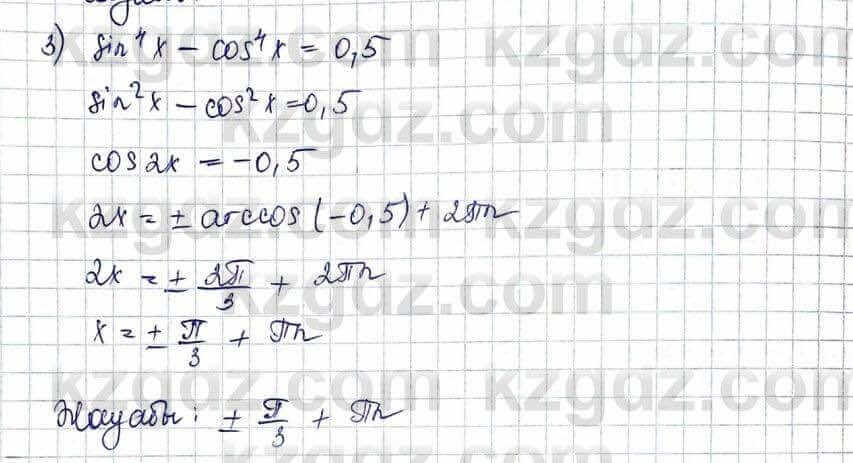 3) sin⁴x − cos⁴x = 0,5
sin²x − cos²x = 0,5
cos 2x = −0,5
2x = ± arccos (−0,5) + 2πn
2x = ± 2π/3 + 2πn
x = ± π/3 + πn
Жауабы: ± π/3 + πn
kzgdz.com kzgdz.com
kzgdz.com
kzgdz.com kzgdz.com
kzgdz.com
kzgdz.com kzgdz.com